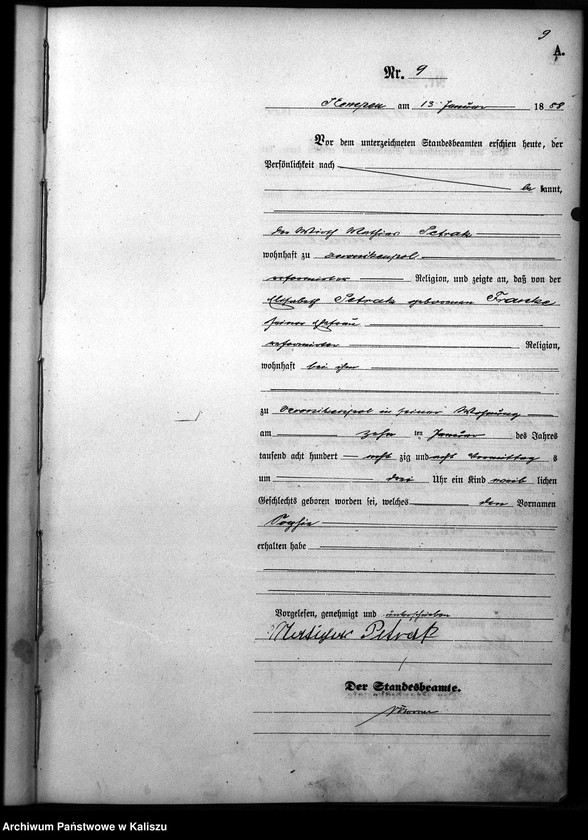 9
A.
Nr. 9
Kempen am 13 Januar 1888
Vor dem unterzeichneten Standesbeamten erschien heute, der
Persönlichkeit nach
be kannt,
der Wirth Mathias Petrak
wohnhaft zu
reformirter Religion, und zeigte an, daß von der
Elisabeth Petrak geborenen Francke
seiner Ehefrau
reformirter Religion,
wohnhaft bei ihm
zu in seiner Wohnung
am zehn ten Januar des Jahres
tausend acht hundert acht zig und acht Vormittag s
um drei Uhr ein Kind weib lichen
Geschlechts geboren worden sei, welches den Vornamen
Sophie
erhalten habe
Vorgelesen, genehmigt und unterschrieben
Petrak
Der Standesbeamte.
Archiwum Państwowe w Kaliszu